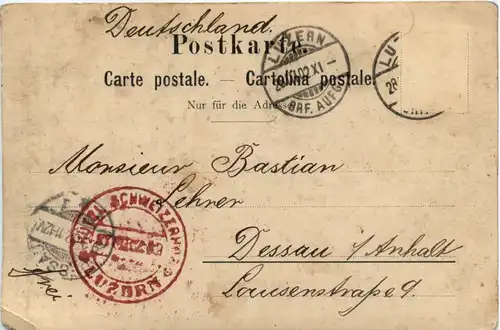 Deutschland.
Postkarte.
Carte postale. — Cartolina postale.
Nur für die Adresse
LUZERN
28.II.02.XI —
BRF. AUFG.
LU
28.
Monsieur Bastian
Lehrer
Dessau i/Anhalt
Louisenstraße 9.
HÔTEL SCHWEIZERHOF
LUZERN
frei